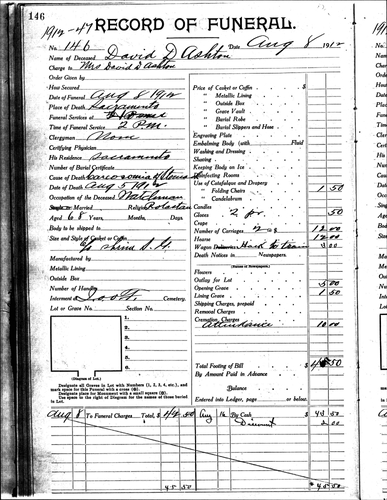 146
1912-47
RECORD OF FUNERAL.
No. 146 Date Aug 8 1912
Name of Deceased David D Ashton
Charge to Mrs David D Ashton
Order Given by
How Secured
Date of Funeral Aug 8 1912
Place of Death Sacramento
Funeral Services at
Time of Funeral Service 2 P.M.
Clergyman None
Certifying Physician
His Residence Sacramento
Number of Burial Certificate
Cause of Death
Date of Death Aug 5 1912
Occupation of the Deceased Watchman
Single or Married Religion
Aged 68 Years, Months, Days
Body to be shipped to
Size and Style of Casket or Coffin
Manufactured by
Metallic Lining
Outside Box
Number of Handles
Interment I.O.O.F. Cemetery.
Lot or Grave No. Section No.
1.
2.
3.
4.
5.
6.
(Diagram of Lot.)
Designate all Graves in Lot with Numbers (1, 2, 3, 4, etc.), and
mark space for this Funeral with a cross
Designate place for Monument with a small square
Use space to the right of Diagram for the names of those buried
in Lot.
Price of Casket or Coffin $
" Metallic Lining
" Outside Box
" Grave Vault
" Burial Robe
" Burial Slippers and Hose
Engraving Plate
Embalming Body (with Fluid
Washing and Dressing
Shaving
Keeping Body on Ice
Disinfecting Rooms
Use of Catafalque and Drapery
" Folding Chairs 1 50
" Candelabrum
Candles
Gloves 2 pr. 50
Crape
Number of Carriages 2 @ 12 00
Hearse 12 00
Wagon Deliveries 3 00
Death Notices in Newspapers.
Flowers
Outlay for Lot
Opening Grave 5 00
Lining Grave 1 50
Shipping Charges, prepaid
Removal Charges
Cremation Charges
Attendance 10 00
Total Footing of Bill $
By Amount Paid in Advance
Balance
Entered into Ledger, page or below.
Aug 8 To Funeral Charges Total, $ Aug 16 By Cash $ 43 50
Discount 2 00
45 50 45 50